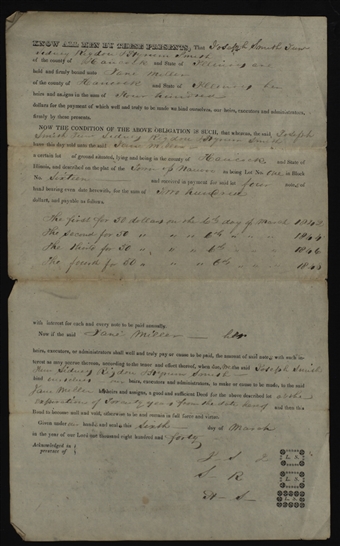 KNOW ALL MEN BY THESE PRESENTS; That Joseph Smith Junr
Sidney Rigdon & Hyrum Smith
of the county of Hancock and State of Illinois are
held and firmly bound unto Jane Miller
of the county of Hancock and State of Illinois her
heirs and assigns in the sum of Four hundred
dollars for the payment of which well and truly to be made we bind ourselves, our heirs, executors and administrators,
firmly by these presents.
NOW THE CONDITION OF THE ABOVE OBLIGATION IS SUCH, that whereas, the said Joseph
Smith Junr Sidney Rigdon Hyrum Smith
have this day sold unto the said Jane Miller
a certain lot of ground situated, lying and being in the county of Hancock and State of
Illinois, and described on the plat of the Town of Nauvoo as being Lot No. One, in Block
No. Sixteen and received in payment for said lot four notes, of
hand bearing even date herewith, for the sum of Two hundred
dollars, and payable as follows.
The first for 50 dollars on the 6th day of March 1842
The second for 50 " " " 6th " " 1844
The third for 50 " " " 6th " " 1846
The fourth for 50 " " " 6th " "
with interest for each and every note to be paid annually.
Now if the said Jane Miller her
heirs, executors, or administrators shall well and truly pay or cause to be paid, the amount of said notes with each interest
as may accrue thereon, according to the tenor and effect thereof, when due, for the said Joseph Smith
Junr Sidney Rigdon Hyrum Smith
bind ourselves our heirs, executors and administrators, to make or cause to be made, to the said
Jane Miller heirs and assigns, a good and sufficient Deed for the above described at the
expiration of Twenty years from the date hereof and then this
Bond to become null and void, otherwise to be and remain in full force and virtue.
Given under our hands and seals this Sixth day of March
in the year of our Lord one thousand eight hundred and forty
Acknowledged in
presence of
J S J L. S.
S R L. S.
H S L. S.